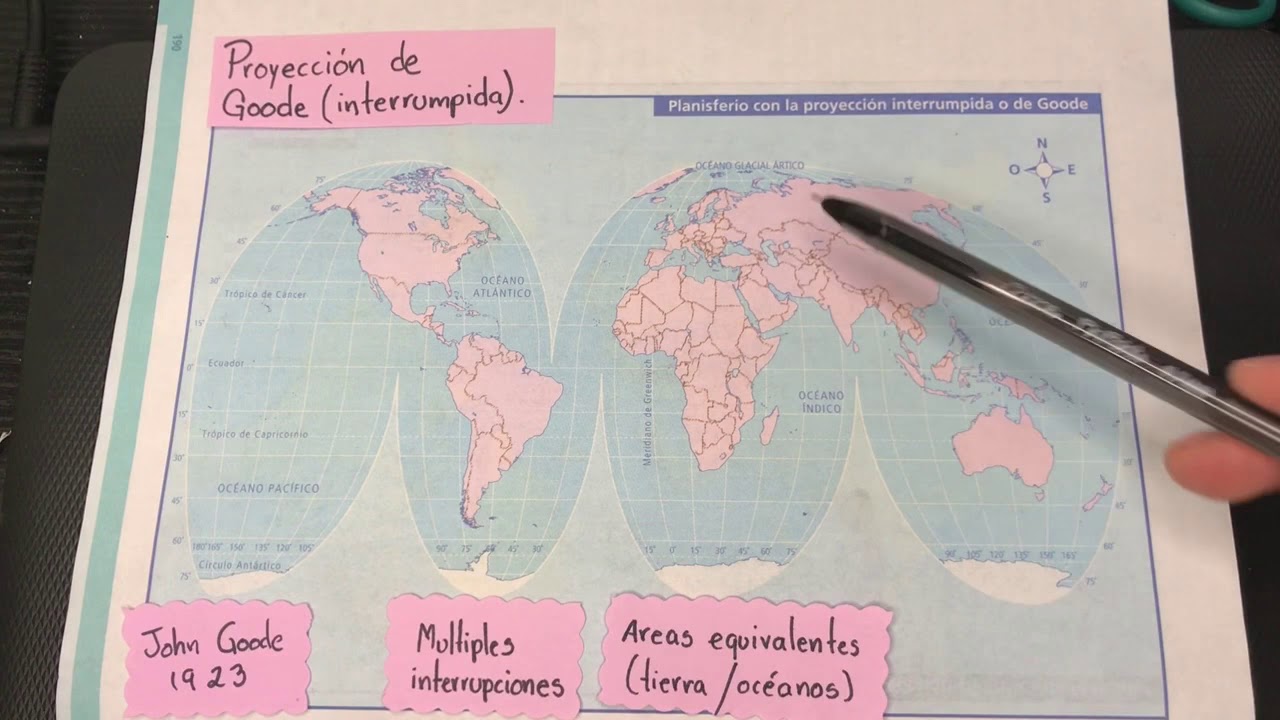 190
Proyección de
Goode (interrumpida).
Planisferio con la proyección interrumpida o de Goode
N
O
E
S
OCÉANO GLACIAL ÁRTICO
75°
75°
60°
60°
45°
45°
OCÉANO
ATLÁNTICO
30°
30°
Trópico de Cáncer
15°
Ecuador
0°
Meridiano de Greenwich
OCÉANO
ÍNDICO
15°
15°
Trópico de Capricornio
30°
30°
OCÉANO PACÍFICO
45°
45°
60°
180°165° 150° 135° 120° 105°
90° 75° 60° 45° 30°
15° 0° 15° 30° 45° 60° 75°
90° 105° 120° 135° 150° 165°
60°
Círculo Antártico
75°
75°
John Goode
1923
Multiples
interrupciones
Areas equivalentes
(tierra / océanos)